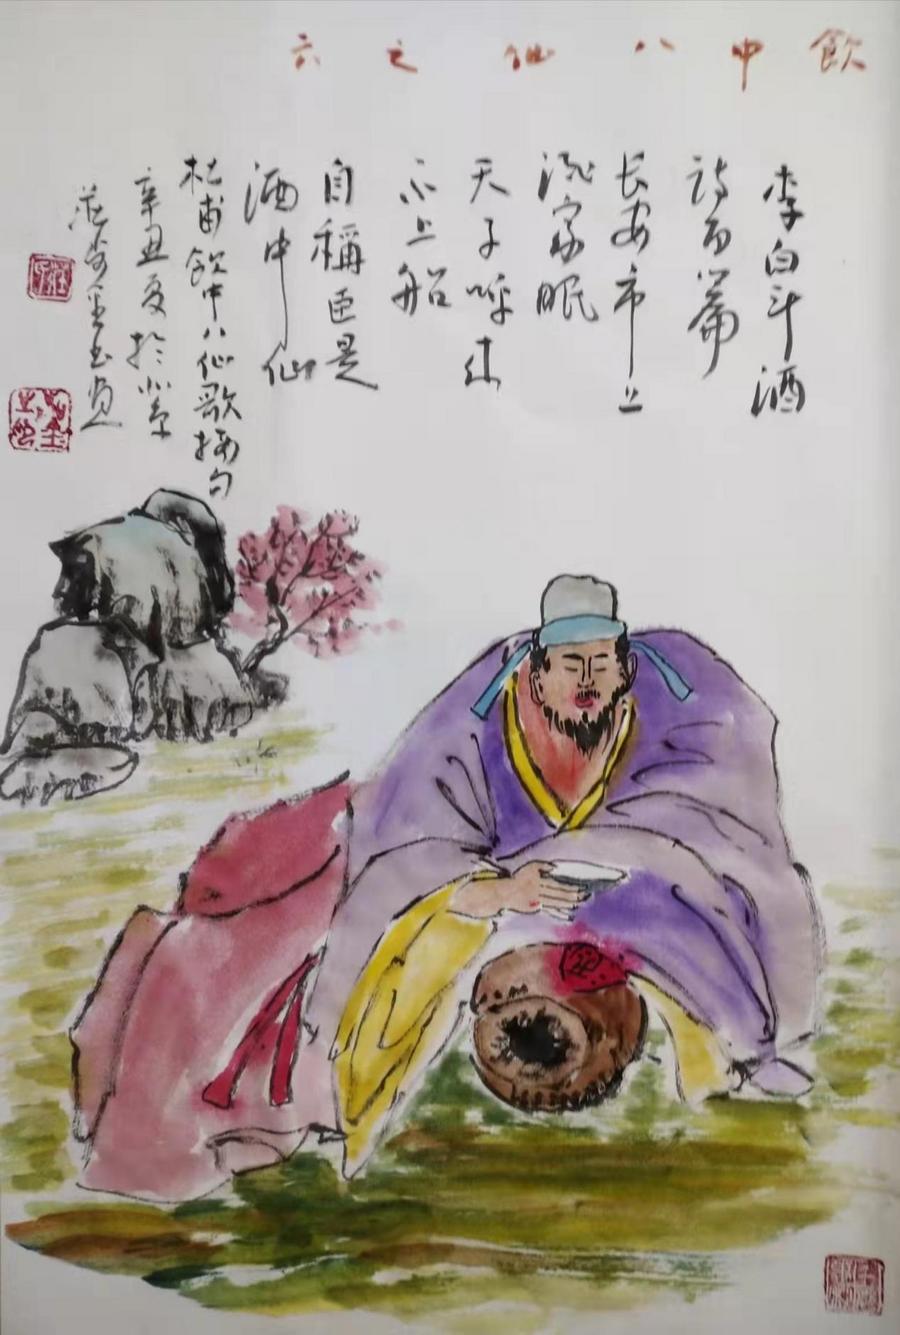 飲中八仙之六
李白斗酒
詩百篇
长安市上
酒家眠
天子呼来
不上船
自稱臣是
酒中仙
杜甫飲中八仙歌摘句
辛丑夏於北京